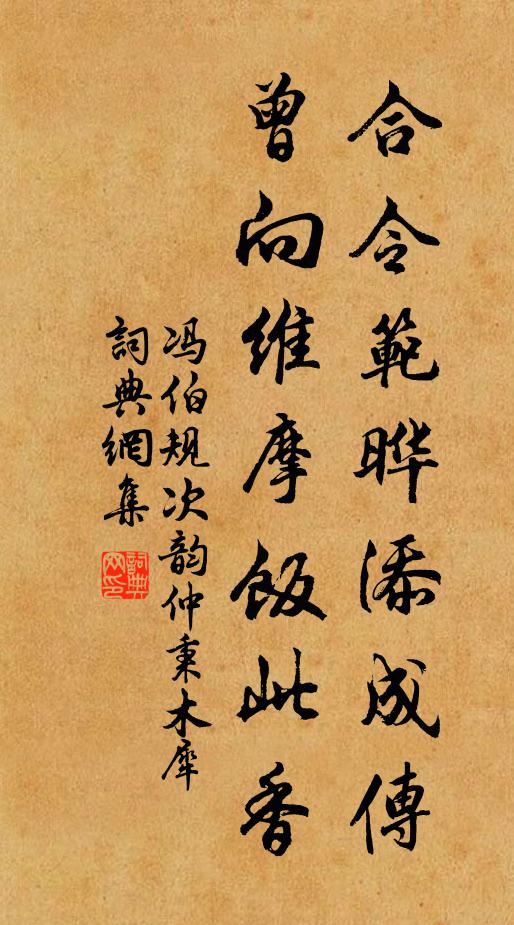 合令範晔添成傳
曾向維摩飯此香
冯伯规次韵仲秉木犀
詞典網集
詞典网印